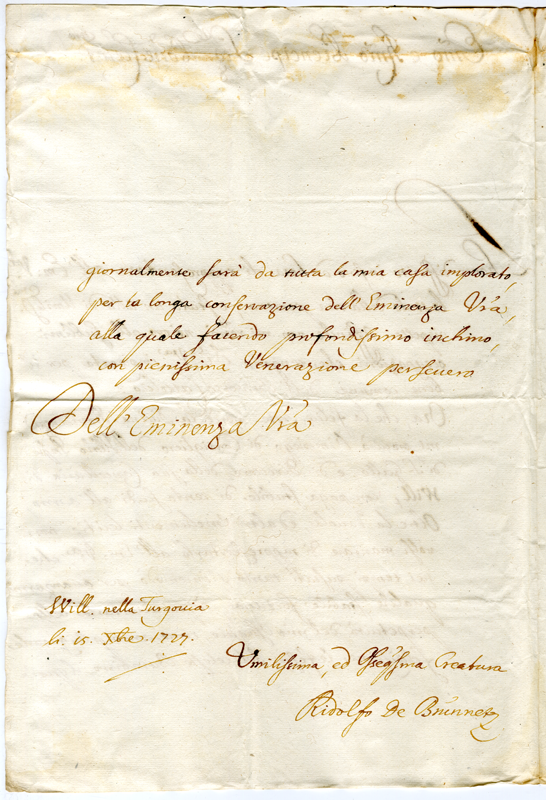 giornalmente sarà da tutta la mia casa implorato,
per la longa conservazione dell'Eminenza Vrã,
alla quale facendo profondissimo inchino,
con pienissima Venerazione persevero
Dell'Eminenza Vrã
Will. nella Turgovia
li. 15. Xbre. 1727.
Umilissima, ed Osseqsma Creatura
Ridolfo De Brunner